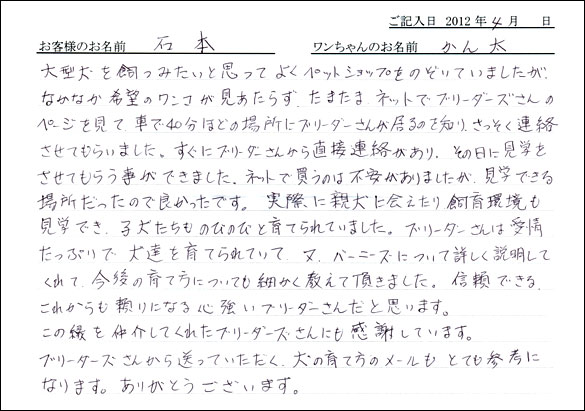 ご記入日 2012 年 4 月 日
お客様のお名前 石本 ワンちゃんのお名前 かん太
大型犬を飼ってみたいと思って よくペットショップをのぞいていましたが、
なかなか希望のワンコが見あたらず、たまたま ネットでブリーダーズさんの
ページを見て、車で40分ほどの場所にブリーダーさんが居るのを知り、さっそく連絡
させてもらいました。すぐにブリーダーさんから直接連絡があり、その日に見学を
させてもらう事ができました。ネットで買うのは不安がありましたが、見学できる
場所だったので良かったです。 実際に親犬に会えたり飼育環境も
見学でき、子犬たちものびのびと育てられていました。ブリーダーさんは愛情
たっぷりで 犬達を育てられていて、又、バーニーズについて詳しく説明して
くれて、今後の育て方についても細かく教えて頂きました。 信頼できる、
これからも頼りになる心強いブリーダーさんだと思います。
この縁を仲介してくれたブリーダーズさんにも感謝しています。
ブリーダーズさんから送っていただく、犬の育て方のメールも とても参考に
なります。ありがとうございます。